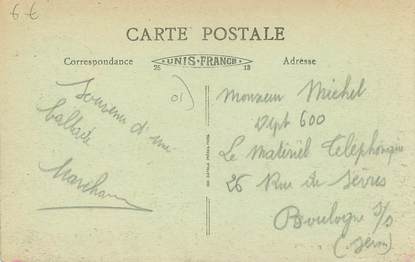 6 €
CARTE POSTALE
Correspondance
UNIS-FRANCE
26 13
Adresse
01
Souvenir d'une
ballade
Marchand
Monsieur Michel
Dept 600
Le Matériel Téléphonique
26 Rue de Sèvres
Boulogne S/S
(Seine)